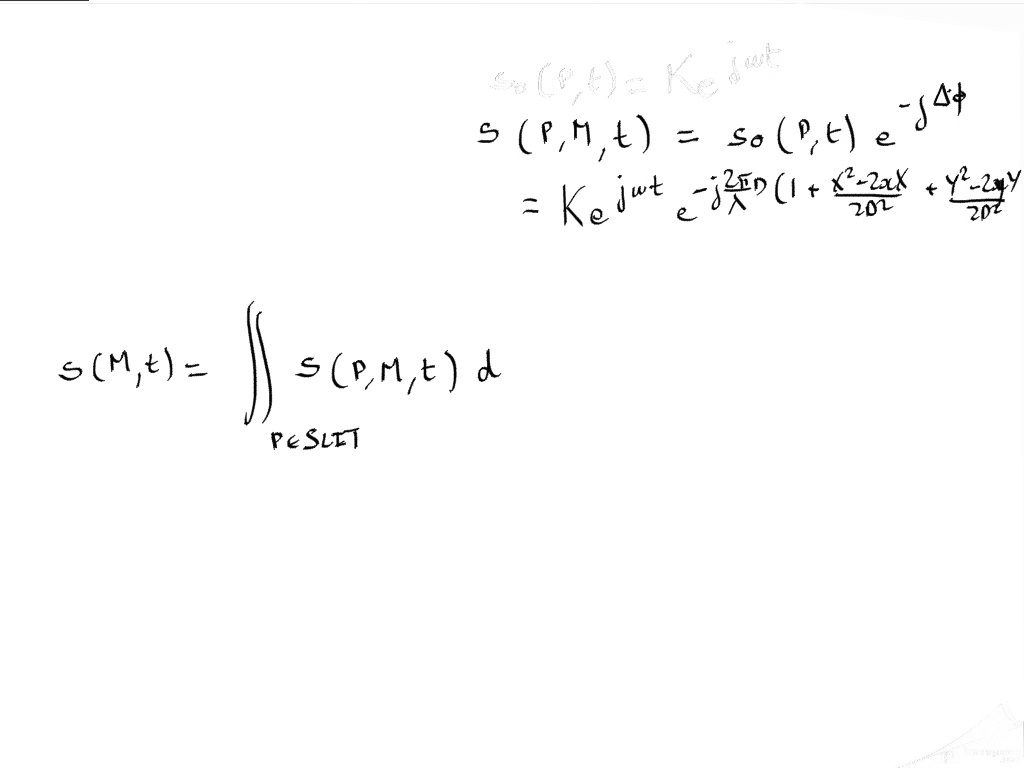 so(P,t) = Ke^{jωt}
s(P,M,t) = so(P,t) e^{-jΔϕ}
= Ke^{jωt} e^{-j\frac{2π}{λ}D(1 + \frac{X²-2xX}{2D²} + \frac{Y²-2yY}{2D²}}
s(M,t) = ∬_{P∈SLIT} s(P,M,t) d